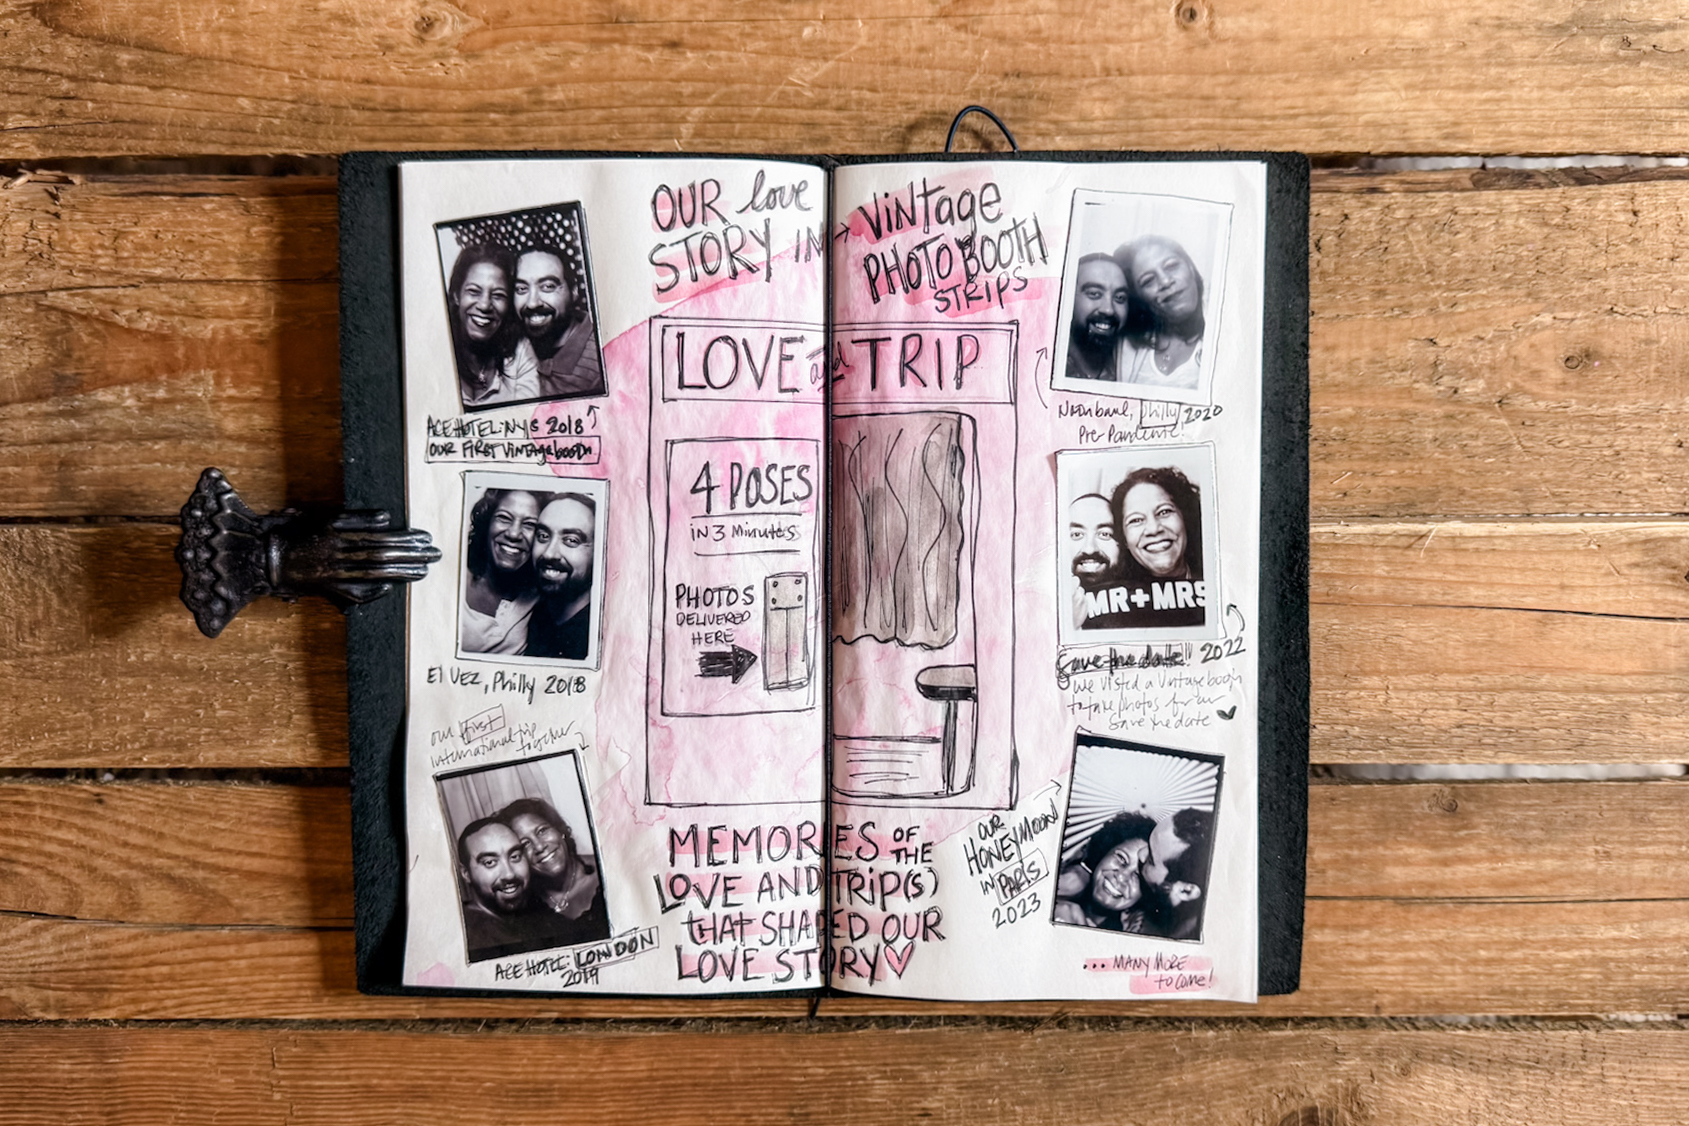 OUR love
STORY IN
Vintage
PHOTO BOOTH
STRIPS
ACE HOTEL: NYC 2018
OUR FIRST Vintage booth
El VEZ, Philly 2018
our first
international trip
together
ACE HOTEL: LONDON
2019
LOVE and TRIP
4 POSES
iN 3 Minutes
PHOTOS
DELIVERED
HERE
MEMORIES OF
THE
LOVE AND TRiP(S)
tHAT SHAPED OUR
LOVE STORY
Philly 2020
Pre-Pandemic!
MR+MRS
Save the date!! 2022
we visited a Vintage booth
to take photos for our
Save the date
OUR
HONEYMOON
IN PARIS
2023
... MANY MORE
to come!